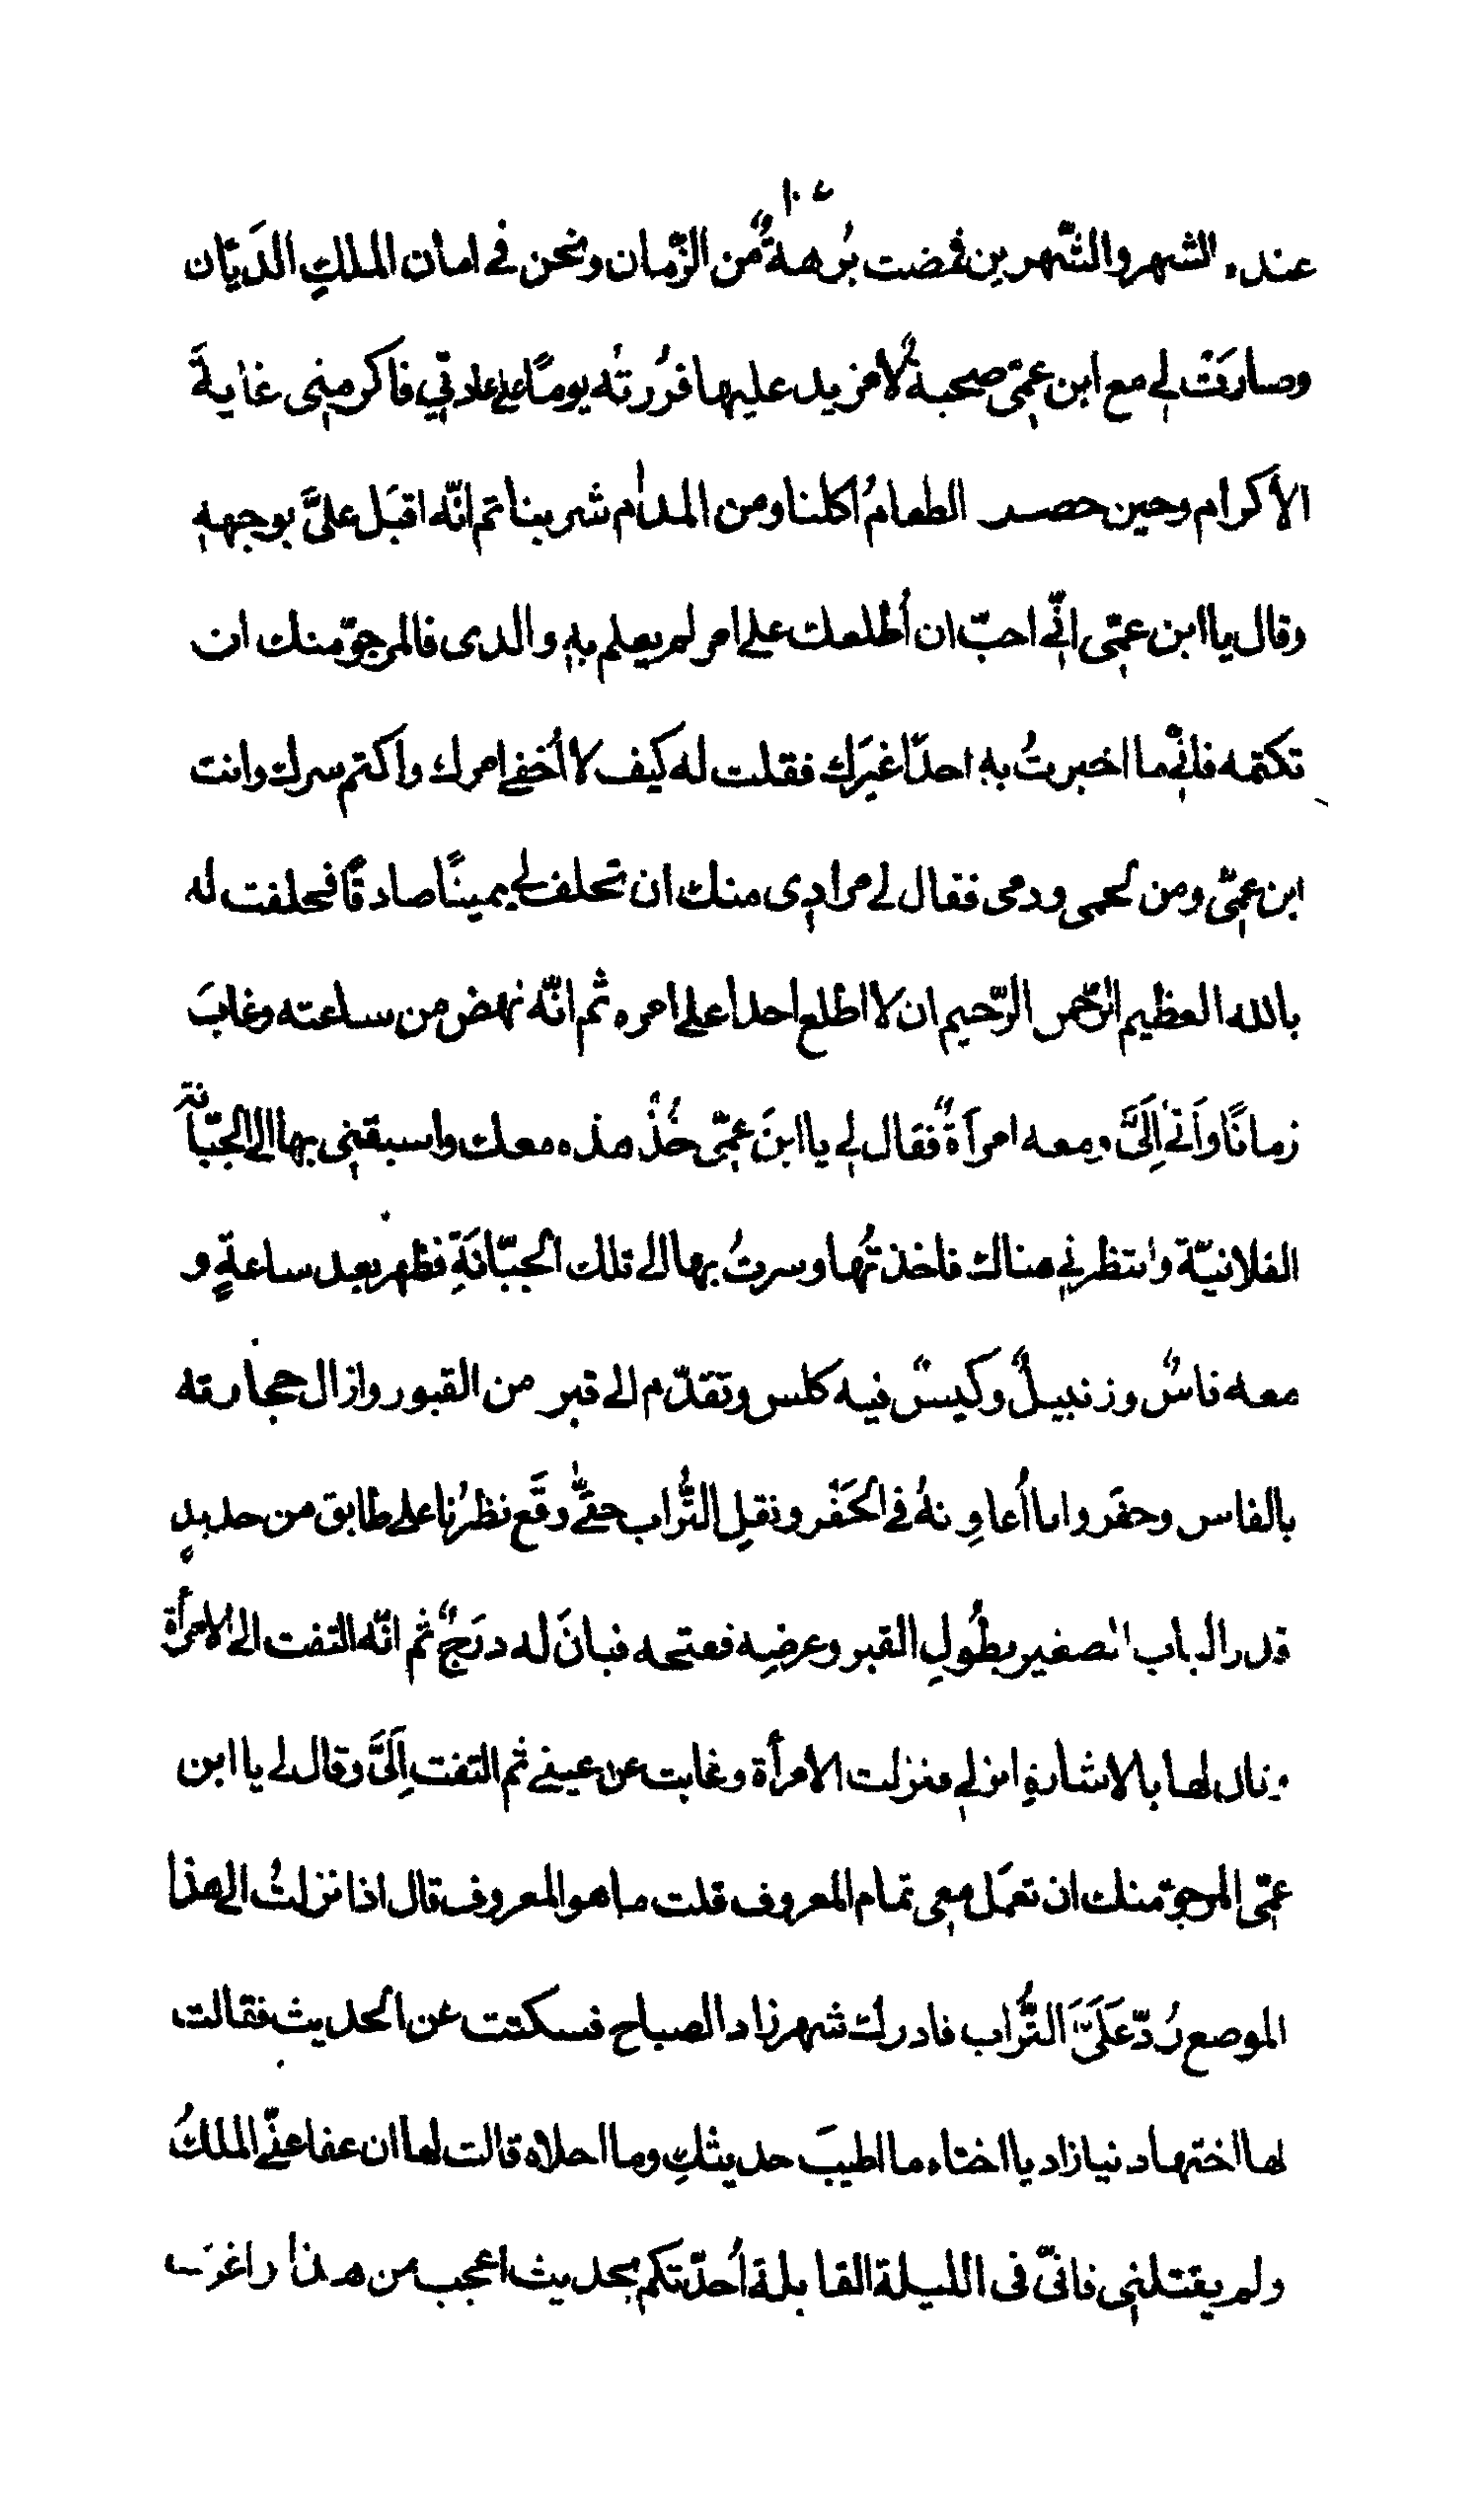 عنده الشهر والشّهرين فمضت بُرهةٌ من الزّمان ونحن في امان الملكِ الدَيّان
وصارَت لي مع ابن عمّي صحبةٌ لا مزيد عليها فزُرتُه يومًا على عادتي فاكرمني غايةَ
الاكرام وحين حضر الطعامُ اكلنا ومن المدام شربنا ثم انّه اقبَل علىَّ بوجههِ
وقال يا ابن عمّي انّي احبّ ان أطلعك على امر لم يعلم بهِ والدى فالمرجوّ منك ان
تكتمه فانّي ما اخبرتُ بهِ احدًا غيَرك فقلت له كيف لا اُخفي امرك واكتم سرك وانت
ابن عمّي ومن لحمي ودمى فقال لي مرادِى منك ان تحلف لي يمينًا صادقًا فحلفت له
بالله العظيم الرّحمن الرّحيم ان لا اطلع احدا على امره ثم انّه نهض من ساعته وغابَ
زمانًا وَاَتى اِلَىَّ ومعه امرأةٌ فقال لي يا ابنَ عمّي خُذْ هذه معك واسبقني بها الى الجبّانَة
الفلانيّة وانتظرني هناك فاخذتُها وسرتُ بها الى تلك الجبّانَةِ فظهر بعد ساعةٍ و
معه فاسٌ وزنبيلٌ وكيسٌ فيه كلس وتقدّم الى قبر من القبور وازال حجارته
بالفاس وحفَر وانا أعاوِنهُ في الحَفْر ونقلِ التُّراب حتّى وقَع نظرُنا على طابق من حديدٍ
قدر الباب الصغير بطُولِ القبر وعرضِه ففتحه فبانَ له درَجٌ ثم انّه التفت الى الامرأة
وقال لها بالاشارةِ انزلي فنزلت الامرأة وغابت عن عيني ثم التفت اِلَىَّ وقال لي يا ابن
عمّي المرجوّ منك ان تعمَل معِي تمام المعروف قلت ما هو المعروف قال اذا نزلتُ الى هذا
الموضع رُدّ عَلَىَّ التُّراب فادرك شهرزاد الصباح فسكتت عن الحديث فقالت
لها اختها دنيازاد يا اختاه ما اطيبَ حديثكِ وما احلاه قالت لها ان عفا عنّي الملكُ
ولم يقتلني فانّي فى الليلة القابلة اُحدّثكم بحديث اعجب من هذا واغرَب